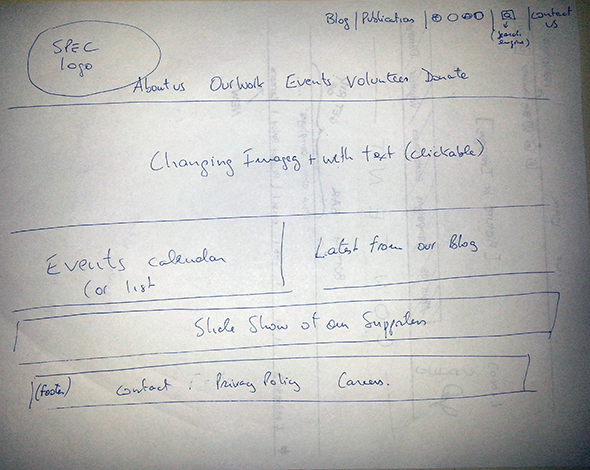 Blog | Publications | | | contact us
(search engine)
SPEC
logo
About us Our work Events Volunteers Donate
Changing Images + with text (clickable)
Events calendar
(or list
Latest from our Blog
Slide Show of our Supporters
(footer) contact : Privacy Policy Careers.